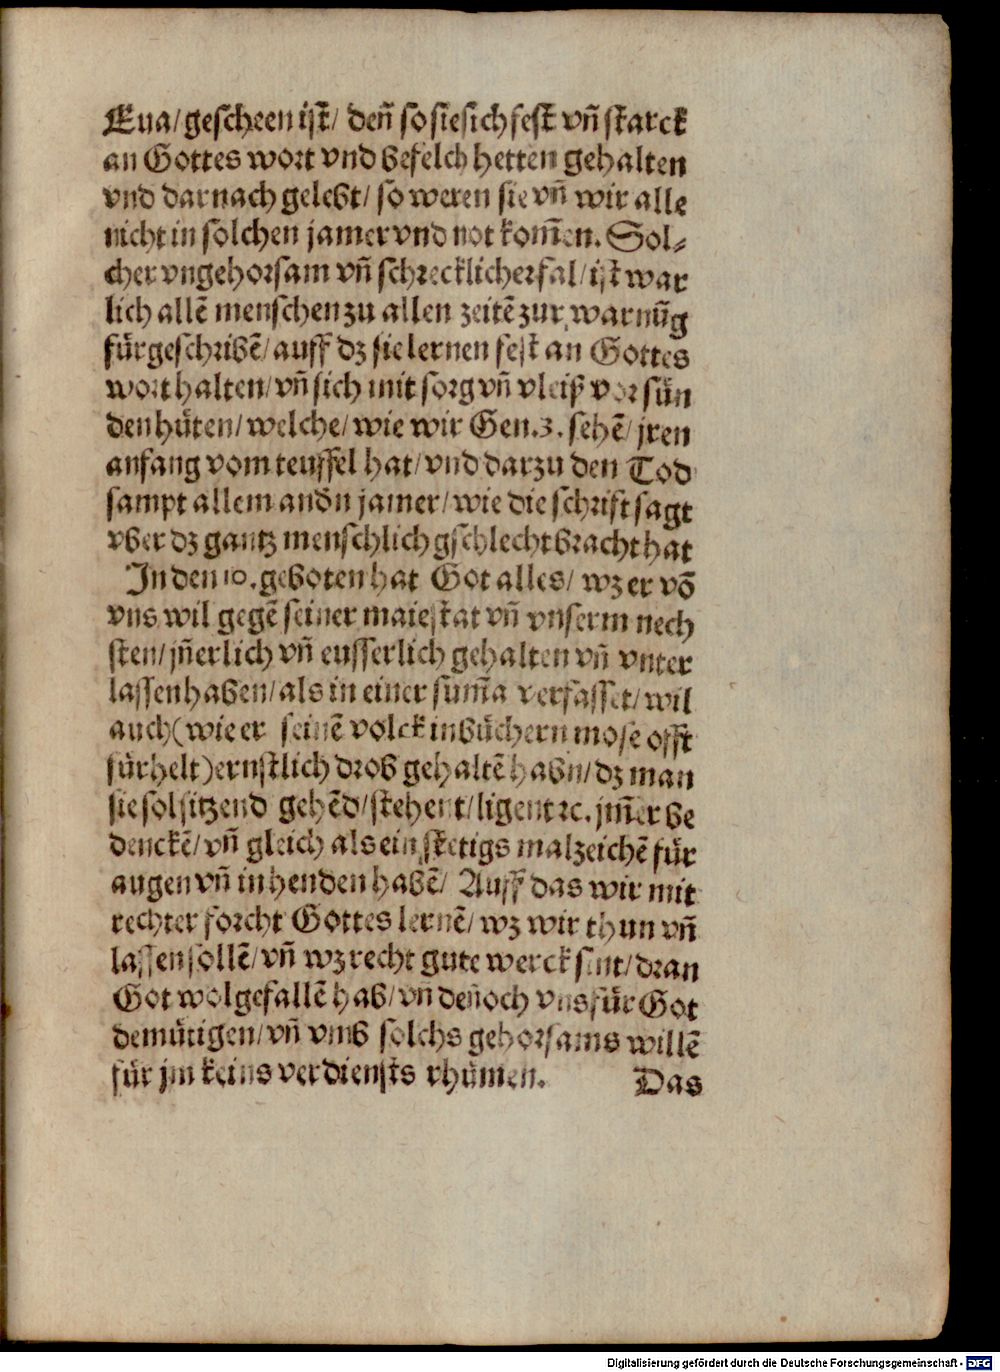 Eua/ gescheen ist/ deñ so sie sich fest vñ starck
an Gottes wort vnd befelch hetten gehalten
vnd darnach gelebt/ so weren sie vñ wir alle
nicht in solchen jamer vnd not kom̃en. Sol⸗
cher vngehorsam vñ schrecklicher fal/ ist war
lich allẽ menschen zu allen zeitẽ zur warnũg
fürgeschribẽ/ auff dz sie lernen fest an Gottes
wort halten/ vñ sich mit sorg vñ vleiß vor sün
den hüten/ welche/ wie wir Gen.3. sehẽ/ jren
anfang vom teuffel hat/ vnd darzu den Tod
sampt allem andn̄ jamer/ wie die schrift sagt
vber dz gantz menschlich gschlecht bracht hat
In den 10. geboten hat Got alles/ wz er võ
vns wil gegẽ seiner maiestat vñ vnserm nech
sten/ jñerlich vñ eusserlich gehalten vñ vnter
lassen haben/ als in einer sum̃a verfasset/ wil
auch (wie er seinẽ volck in büchern mose offt
fürhelt) ernstlich drob gehaltẽ habn/ dz man
sie sol sitzend gehẽd/ stehent/ ligent ꝛc. jm̃er be
denckẽ/ vñ gleich als ein stetigs malzeichẽ für
augen vñ in henden habẽ/ Auff das wir mit
rechter forcht Gottes lernẽ/ wz wir thun vñ
lassen sollẽ/ vñ wz recht gute werck sint/ dran
Got wolgefallẽ hab/ vñ deñoch vns für Got
demütigen/ vñ vmb solchs gehorsams willẽ
für jm keins verdiensts rhümen. Das
Digitalisierung gefördert durch die Deutsche Forschungsgemeinschaft - DFG